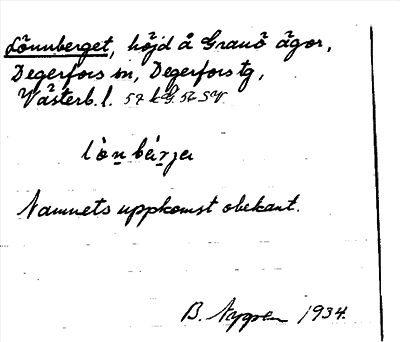 Lönnberget, höjd å Granö ägor,
Degerfors sn, Degerfors tg,
Västerb. l.
Namnets uppkomst obekant.
B. Nygren 1934.